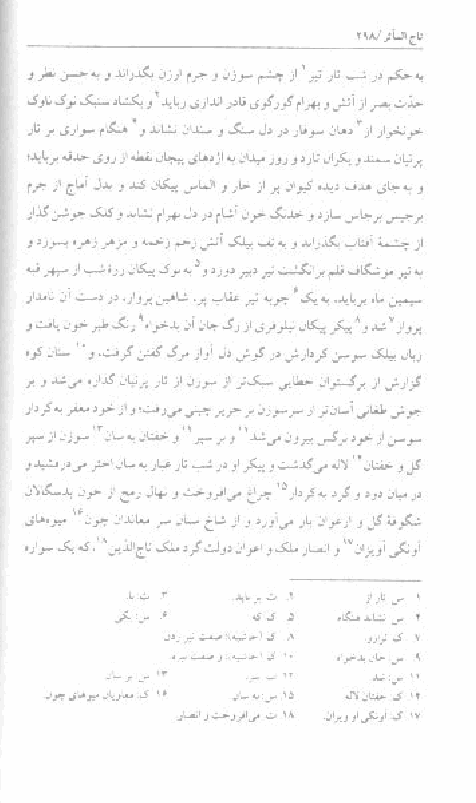 تاج المآثر /۲۹۸
به حکم در شب تار تیر۲ از چشم سوزن و جرم ارزن بگذراند و به حسن نظر و
حدّت بصر از آتش و بهرام گورگوی قادر اندازی رباید۲ و بگشاد سبک نوک ناوک
خونخوار از۳ دهان سوفار در دل سنگ و سندان نشاند و۴ هنگام سواری بر تار
پرنیان سمند و یکران تازد و روز میدان به اژدهای پیچان نقطه از روی حدقه برباید؛
و به جای هدف دیده کیوان پر از خار و الماس پیکان کند و بدل آماج از جرم
برجیس برجاس سازد و خدنگ خون آشام در دل بهرام نشاند و کلک جوشن گذار
از چشمهٔ آفتاب بگذراند و به تف بیلک آتش زخم زخمه و مزهر زهره بسوزد و
به تیر موشگاف قلم بر انگشت تیر دبیر دوزد و۵ به نوک پیکان زرهٔ شب از سپهر قبه
سیمین ماه برباید. به یک۶ چوبه تیر عقاب پر، شاهین پرواز، در دست آن نامدار
پرواز۷ شد و۸ پیکر پیکان نیلوفری از رگ جان آن بدخواه۹ رنگ طبر خون یافت و
زبان بیلک سوسن کردارش در گوش دل آواز مرگ گفتن گرفت، و۱۰ سنان کوه
گزارش از برگستوان خطایی سبک‌تر از سوزن از تار پرنیان گذاره می‌شد و بر
جوش طغانی آسان‌تر از سر سوزن بر حریر چینی می‌رفت؛ و از خود مغفر به کردار
سوسن از خود نرگس بیرون می‌شد۱۱ و بر سپر۱۲ و خفتان به سان۱۳ سوزن از سپر
گل و خفتان۱۴ لاله می‌گذشت و پیکر او در شب تار غبار به سان اختر می‌درخشید و
در میان دود و گرد به کردار۱۵ چراغ می‌افروخت و نهال رمح از خون بدسگالان
شگوفهٔ گل و ارغوان بار می‌آورد و از شاخ سنان سر معاندان چون۱۶ میوه‌های
آونگی آویزان۱۷ و انصار ملک و اعوان دولت گرد ملک تاج‌الدین۱۸، که یک سواره
۱ س: تار از ۲. ت: بر باید. ۳. ت: با.
۴ س: نشاند هنگام ۵. ک: که ۶. س: یکی
۷ ک: ترازو. ۸. ک (حاشیه): صفت تیر زدن
۹. س: جان بدخواه ۱۰ ک (حاشیه): و صفت نیزه
۱۱ س: شد ۱۲ ت: سر. ۱۳ س: بر سان
۱۴ ک: خفتان لاله ۱۵ س: به سان ۱۶ ک: معاونان میوه‌های چون
۱۷ ک: آونگی او ویران. ۱۸ ت: می‌افروخت و انصار.